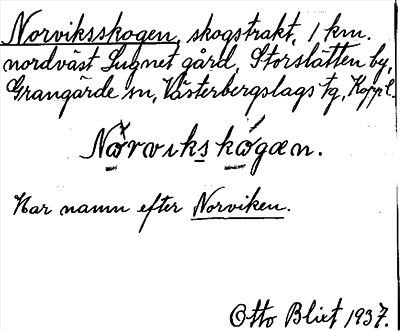 Norviksskogen, skogstrakt, 1 km.
nordväst Lugnet gård, Storslätten by,
Grangärde sn, Västerbergslags tg, Kopp.l.
Nórvikskógæn.
Har namn efter Norviken.
Otto Blixt 1937.